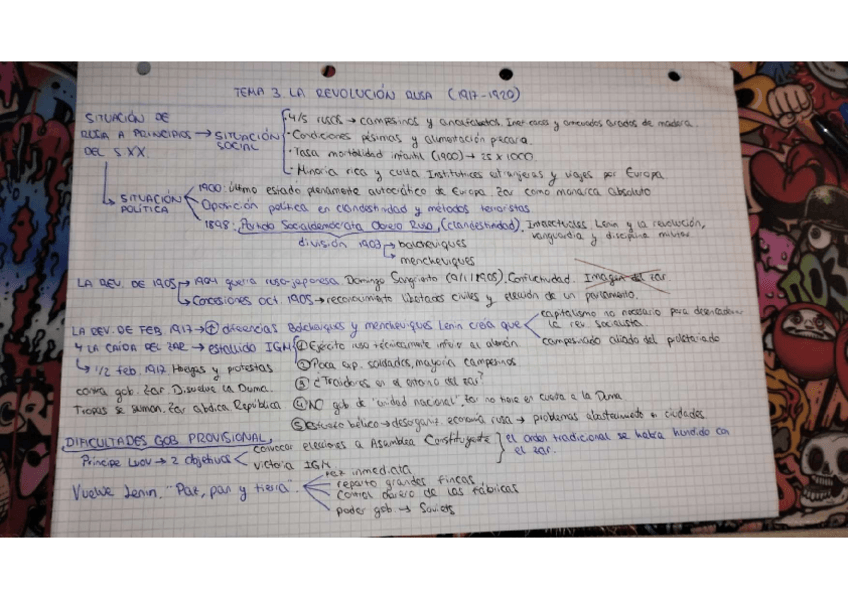 TEMA 3. LA REVOLUCIÓN RUSA (1917-1920)
SITUACIÓN DE RUSIA A PRINCIPIOS DEL S.XX. → SITUACIÓN SOCIAL
4/5 rusos → campesinos y analfabetos. arados de madera.
· Condiciones pésimas y alimentación precaria.
· Tasa mortalidad infantil (1900) → 25 x 1000.
· Minoría rica y culta. Institutrices extranjeras y viajes por Europa.
SITUACIÓN POLÍTICA
1900: Último estado plenamente autocrático de Europa. Zar como monarca absoluto
Oposición política en clandestinidad y métodos terroristas
1898: Partido Socialdemócrata Obrero Ruso, (clandestinidad). Intelectuales, Lenin y la revolución,
vanguardia y disciplina militar.
división 1903 → bolcheviques
→ mencheviques
LA REV. DE 1905 → 1904 guerra ruso-japonesa. Domingo Sangriento (9/1/1905). Conflictividad. Imagen del zar.
→ Concesiones oct 1905 → reconocimiento libertades civiles y elección de un parlamento.
LA REV. DE FEB 1917 → diferencias Bolcheviques y mencheviques. Lenin creía que
capitalismo no necesario para desencadenar
la rev. socialista.
campesinado aliado del proletariado
Y LA CAÍDA DEL ZAR → estallido IGM
① Ejército ruso técnicamente inferior al alemán
② Poca cap. soldados, mayoría campesinos
③ ¿Traidores en el entorno del zar?
④ NO gob de "unidad nacional", zar no tiene en cuenta a la Duma
⑤ Esfuerzo bélico → desorganiz. economía rusa → problemas abastecimiento en ciudades
↳ 1/2 feb. 1917 Huelgas y protestas
contra gob. zar. Disuelve la Duma.
Tropas se suman. Zar abdica. República
DIFICULTADES GOB PROVISIONAL
Príncipe Lvov → 2 objetivos
convocar elecciones a Asamblea Constituyente
victoria IGM
el orden tradicional se había hundido con
el zar.
Vuelve Lenin. "Paz, pan y tierra".
paz inmediata
reparto grandes fincas
control obrero de las fábricas
poder gob → Soviets